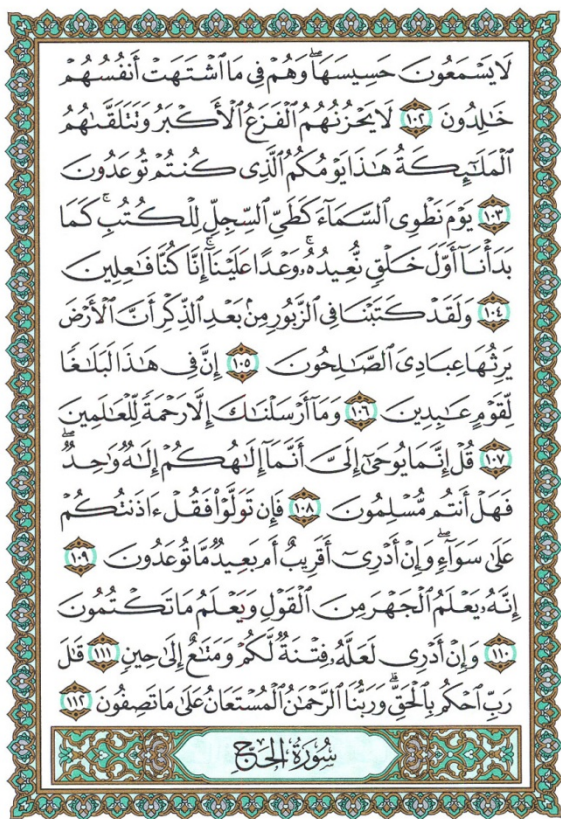 لَا يَسْمَعُونَ حَسِيسَهَا ۖ وَهُمْ فِي مَا ٱشْتَهَتْ أَنفُسُهُمْ
خَـٰلِدُونَ ١٠٢ لَا يَحْزُنُهُمُ ٱلْفَزَعُ ٱلْأَكْبَرُ وَتَتَلَقَّىٰهُمُ
ٱلْمَلَـٰٓئِكَةُ هَـٰذَا يَوْمُكُمُ ٱلَّذِى كُنتُمْ تُوعَدُونَ
١٠٣ يَوْمَ نَطْوِى ٱلسَّمَآءَ كَطَىِّ ٱلسِّجِلِّ لِلْكُتُبِ ۚ كَمَا
بَدَأْنَآ أَوَّلَ خَلْقٍ نُّعِيدُهُۥ ۚ وَعْدًا عَلَيْنَآ ۚ إِنَّا كُنَّا فَـٰعِلِينَ
١٠٤ وَلَقَدْ كَتَبْنَا فِى ٱلزَّبُورِ مِنۢ بَعْدِ ٱلذِّكْرِ أَنَّ ٱلْأَرْضَ
يَرِثُهَا عِبَادِىَ ٱلصَّـٰلِحُونَ ١٠٥ إِنَّ فِى هَـٰذَا لَبَلَـٰغًا
لِّقَوْمٍ عَـٰبِدِينَ ١٠٦ وَمَآ أَرْسَلْنَـٰكَ إِلَّا رَحْمَةً لِّلْعَـٰلَمِينَ
١٠٧ قُلْ إِنَّمَا يُوحَىٰٓ إِلَىَّ أَنَّمَآ إِلَـٰهُكُمْ إِلَـٰهٌ وَٰحِدٌ ۖ
فَهَلْ أَنتُم مُّسْلِمُونَ ١٠٨ فَإِن تَوَلَّوْا۟ فَقُلْ ءَاذَنتُكُمْ
عَلَىٰ سَوَآءٍ ۖ وَإِنْ أَدْرِىٓ أَقَرِيبٌ أَم بَعِيدٌ مَّا تُوعَدُونَ ١٠٩
إِنَّهُۥ يَعْلَمُ ٱلْجَهْرَ مِنَ ٱلْقَوْلِ وَيَعْلَمُ مَا تَكْتُمُونَ
١١٠ وَإِنْ أَدْرِى لَعَلَّهُۥ فِتْنَةٌ لَّكُمْ وَمَتَـٰعٌ إِلَىٰ حِينٍ ١١١ قَـٰلَ
رَبِّ ٱحْكُم بِٱلْحَقِّ ۗ وَرَبُّنَا ٱلرَّحْمَـٰنُ ٱلْمُسْتَعَانُ عَلَىٰ مَا تَصِفُونَ ١١٢
سُورَةُ الحَجِّ